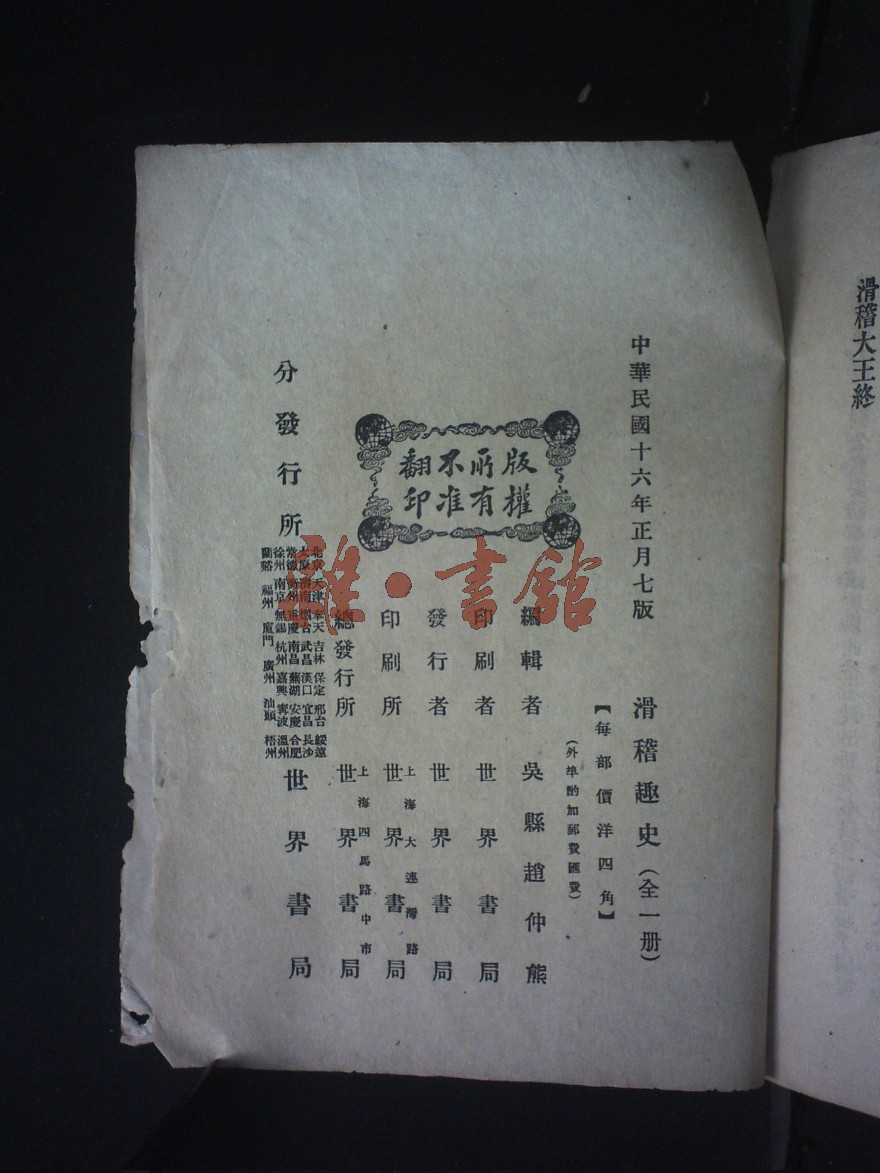 滑稽大王終
中華民國十六年正月七版
滑稽趣史(全一册)
【每部價洋四角】
(外埠酌加郵費匯費)
版權
所有
不准
翻印
編輯者 吳縣趙仲熊
印刷者 世界書局
發行者 世界書局
印刷所 上海大連灣路 世界書局
總發行所 上海四馬路中市 世界書局
分發行所
北京 天津 奉天 吉林 保定 邢台 綏遠
太原 濟南 烟台 武昌 漢口 宜昌 長沙
常德 衡州 重慶 南昌 蕪湖 安慶 合肥
徐州 南京 無錫 杭州 嘉興 寗波 溫州
蘭谿 福州 廈門 廣州 汕頭 梧州
世界書局
雅·書館